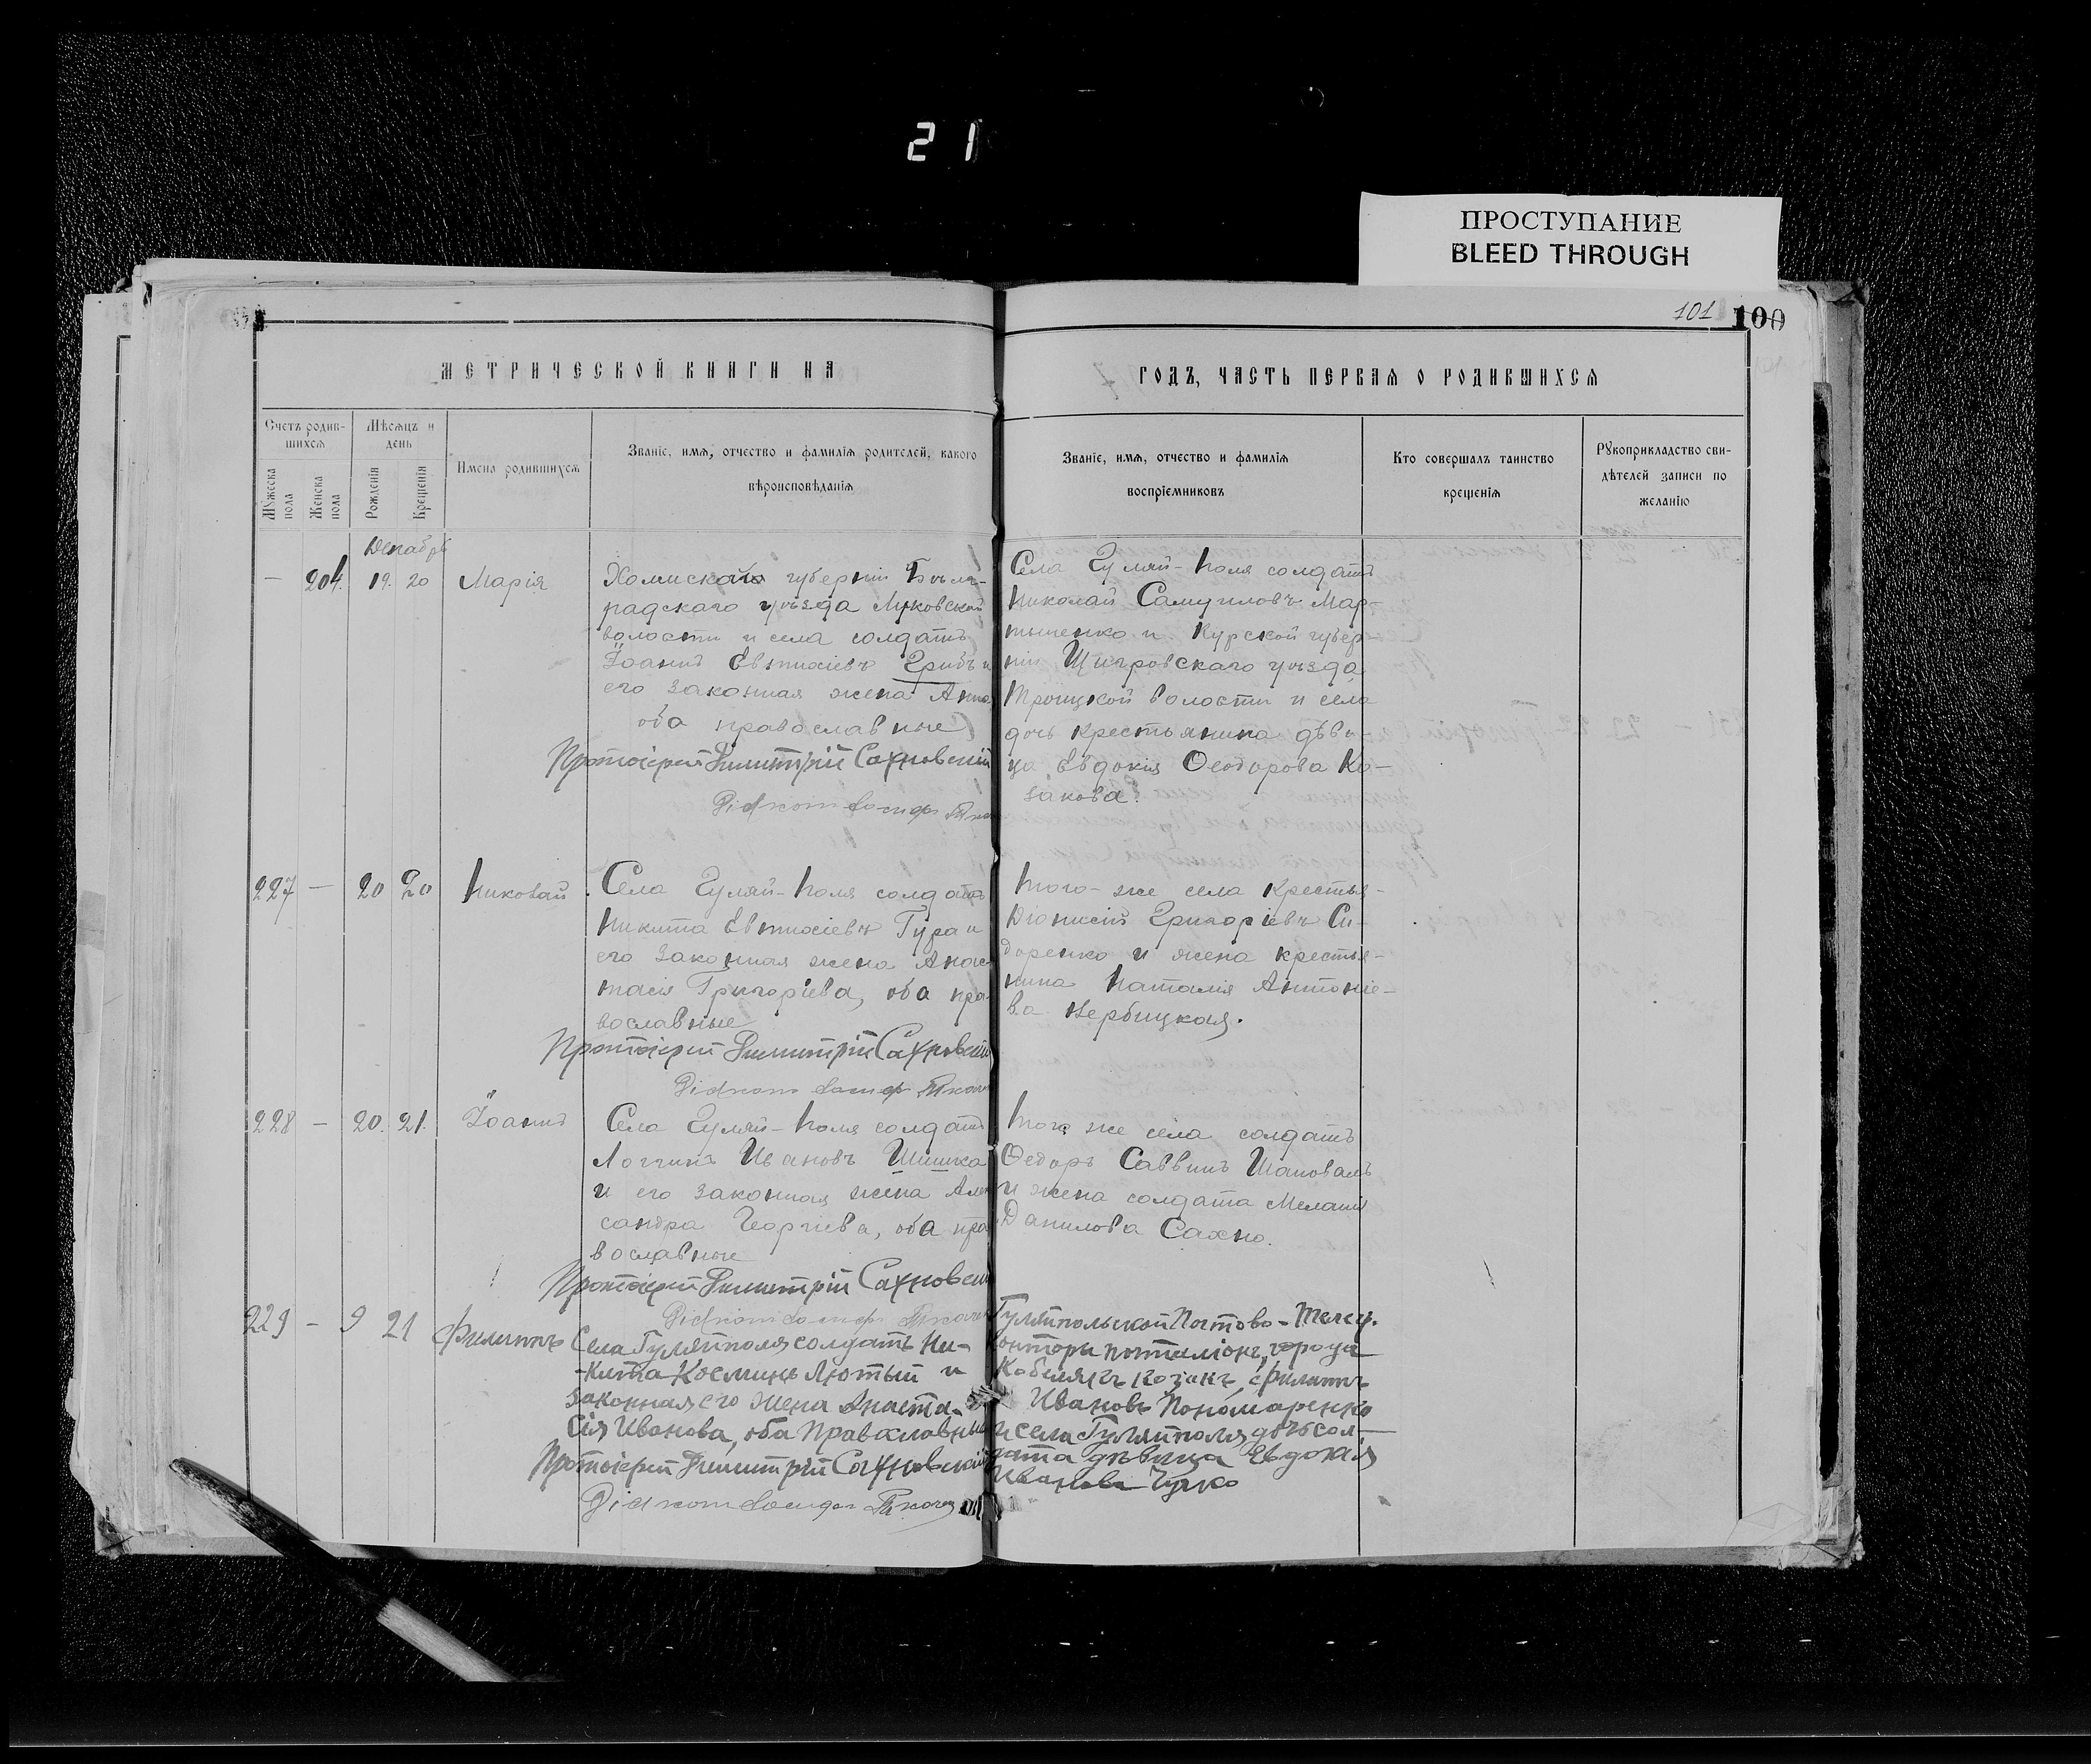 21
ПРОСТУПАНИЕ
BLEED THROUGH
101 100
МЕТРИЧЕСКОЙ КНИГИ НА
ГОДЪ, ЧАСТЬ ПЕРВАЯ О РОДИВШИХСЯ
Счетъ родив-
шихся
Мѣсяцъ и
день
Мужеска пола
Женска пола
Рожденія
Крещенія
Имена родившихся
Званіе, имя, отчество и фамилія родителей, какого
вѣроисповѣданія
Званіе, имя, отчество и фамилія
воспріемниковъ
Кто совершалъ таинство
крещенія
Рукоприкладство сви-
дѣтелей записи по
желанію
Декабрь
— 204. 19. 20 Марія
Холмской губерніи Бѣлг-
радскаго уѣзда Луковской
волости и села солдатъ
Іоаннъ Евтихіевъ Грибъ и
его законная жена Анна
оба православные
Протоіерей Димитрій Сахновскій
Села Гуляй-Поля солдатъ
Николай Самуиловъ Мар-
тыненко и Курской губер-
ніи Щигровскаго уѣзда
Троицкой волости и села
дочь крестьянина дѣви-
ца Евдокія Ѳеодорова Ко-
закова.
227 — 20 20 Николай
Села Гуляй-Поля солдатъ
Никита Евтихіевъ Гура и
его законная жена Анас
тасія Григоріева, оба пра-
вославные
Протоіерей Димитрій Сахновскій
Того-же села крестья-
Діонисій Григоріевъ Си-
доренко и жена крестья-
нина Наталія Антоніе-
ва Вербицкая.
228 — 20. 21. Іоаннъ
Села Гуляй-Поля солдатъ
Логгинъ Ивановъ Шишка
и его законная жена Алек
сандра Георгіева, оба пра
вославные
Протоіерей Димитрій Сахновскій
Того же села солдатъ
Ѳедоръ Саввинъ Шаповалъ
и жена солдата Меланія
Данилова Сахно.
229 — 9 21 Филиппъ
Села Гуляйполя солдатъ Ни-
-кита Косминъ Лютый и
законная его жена Анаста-
сія Иванова, оба Православные
Протоіерей Димитрій Сахновскій
Гуляйпольской Почтово-Телегр.
конторы почталіонъ, города
Кобелякъ козакъ, Филиппъ
Ивановъ Пономаренко
и села Гуляйполя, дочь сол-
дата дѣвица Евдокія
Иванова Чучко